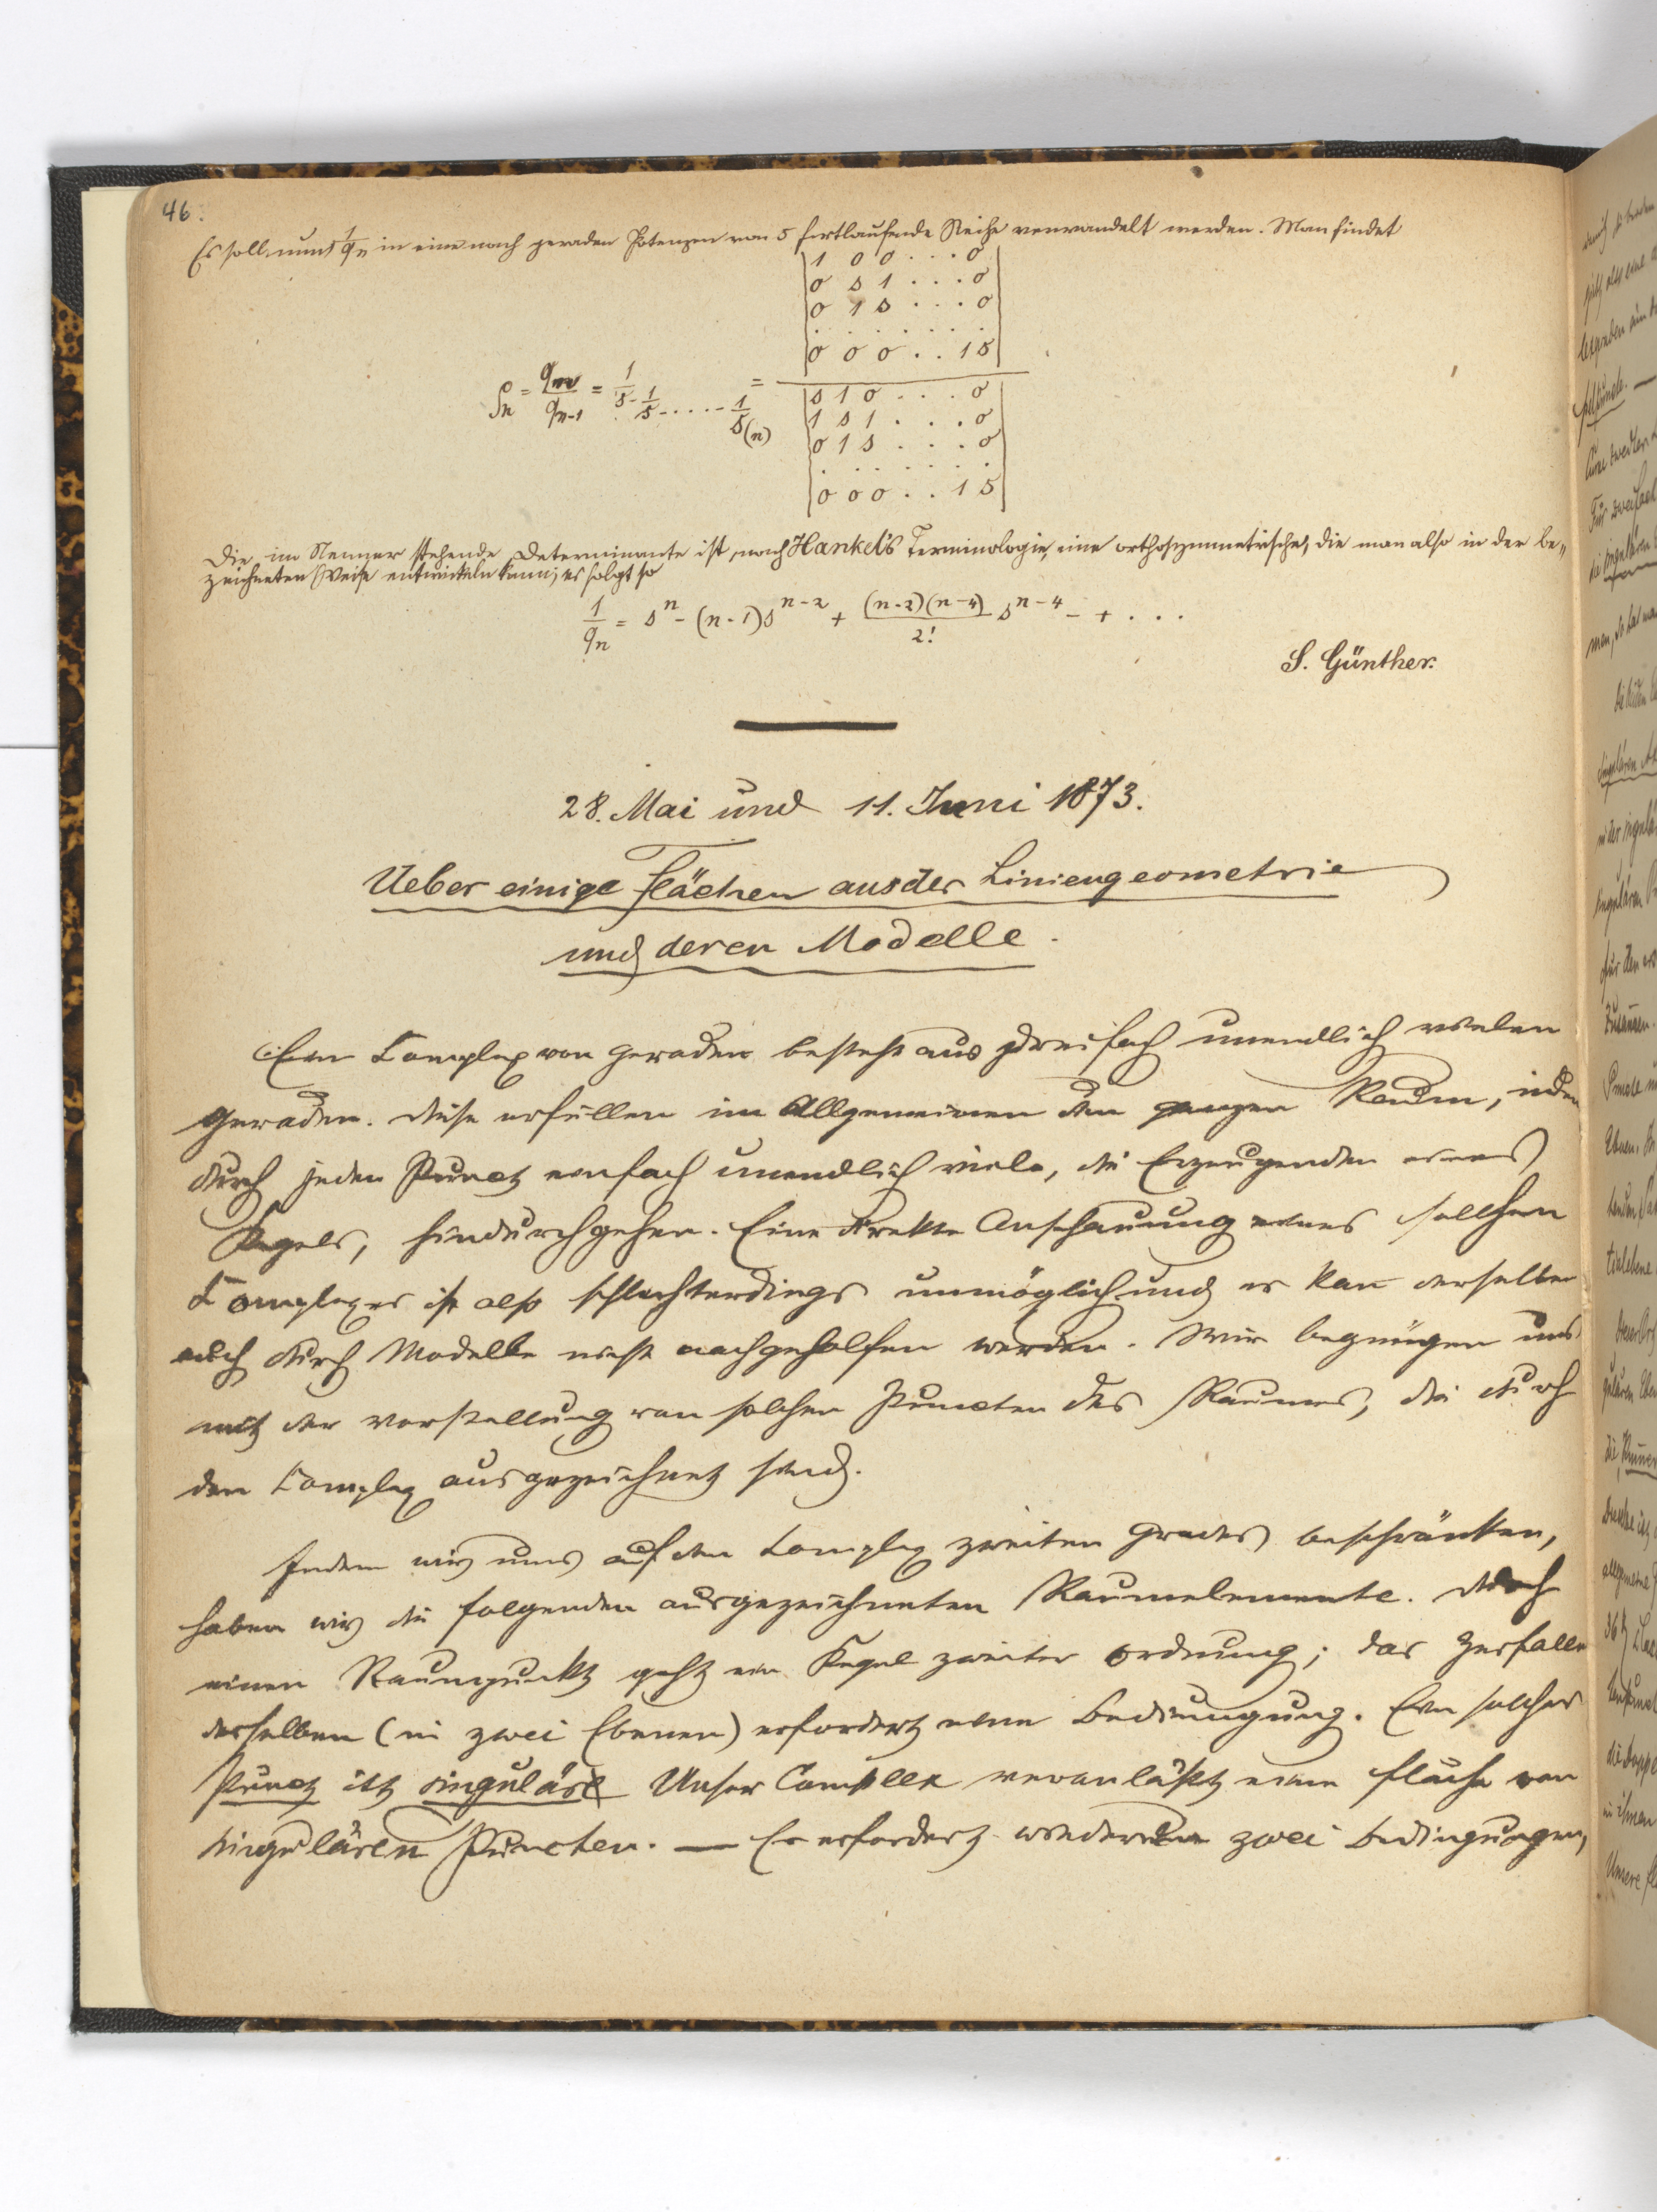 46.
Es soll nun 1/qn in eine nach geraden Potenzen von s fortlaufende Reihe verwandelt werden. Man findet
| 1 0 0 . . . 0 |
| 0 s 1 . . . 0 |
| 0 1 s . . . 0 |
. . . . . . .
| 0 0 0 . . 1 s |
ρn = qn/qn-1 = 1/s - 1/s - . . . . - 1/s(n) =
| s 1 0 . . . 0 |
| 1 s 1 . . . 0 |
| 0 1 s . . . 0 |
. . . . . . .
| 0 0 0 . . 1 s |
Die im Nenner stehende Determinante ist, nach Hankel's Terminologie, eine orthosymmetrische, die man also in der be-
zeichneten Weise entwickeln kann; es folgt so
1/qn = s^n - (n-1)s^n-2 + (n-2)(n-4)/2! s^n-4 - + . . .
S. Günther.
28. Mai und 11. Juni 1873.
Ueber einige Flächen aus der Liniengeometrie
und deren Modelle.
Ein Complex von Geraden besteht aus dreifach unendlich vielen
Geraden. Diese erfüllen im Allgemeinen den ganzen Raum, indem
durch jeden Punct einfach unendlich viele, die Erzeugenden eines
Kegels, hindurchgehen. Eine direkte Anschauung eines sollchen
Complexes ist also schlechterdings unmöglich und es kan̄ derselben
auch durch Modelle nicht nachgeholfen werden. Wir begnügen uns
mit der Vorstellung von solchen Puncten des Raumes, die durch
den Complex ausgezeichnet sind.
Indem wir uns auf den Complex zweiten Grades beschränken,
haben wir die folgenden ausgezeichneten Raumelemente. Durch
einen Raumpunkt geht ein Kegel zweiter Ordnung; das Zerfallen
desselben (in zwei Ebenen) erfordert eine Bedingung. Ein solcher
Punct ist singulär Unser Complex veranlaßt eine Fläche von
singulären Puncten. — Es erfordert wiederum zwei Bedingungen,